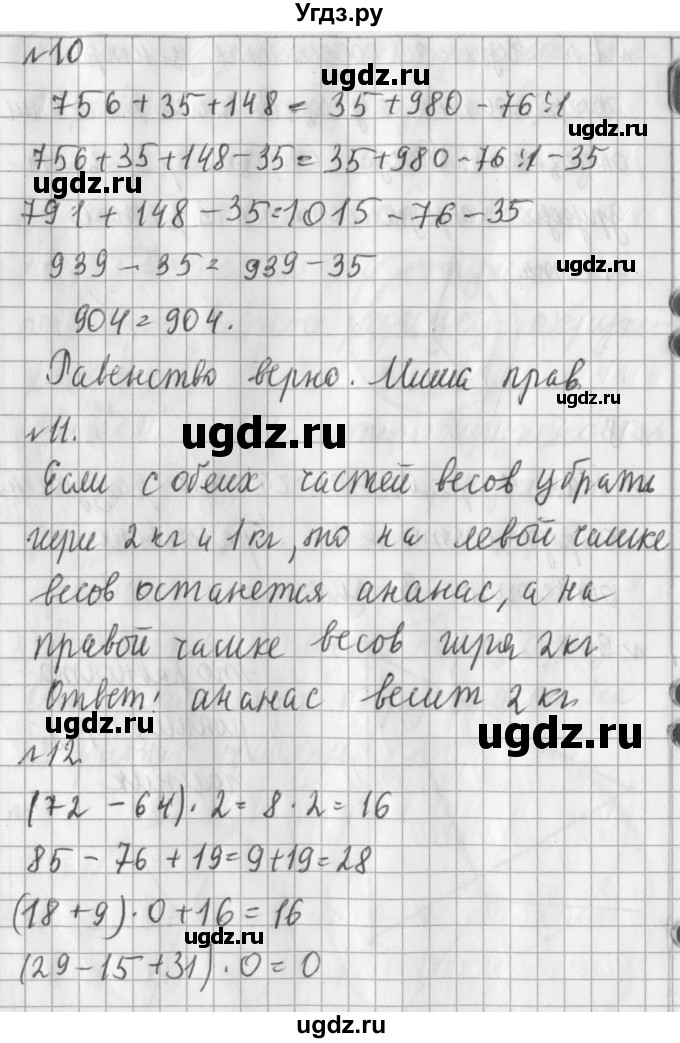 Угдз.ру
№10
ugdz.ru
756 + 35 + 148 = 35 + 980 - 76 : 1
ugdz.ru
756 + 35 + 148 - 35 = 35 + 980 - 76 : 1 - 35
ugdz.ru
791 + 148 - 35 = 1015 - 76 - 35
939 - 35 = 939 - 35
ugdz.ru
904 = 904.
Равенство верно. Миша прав.
ugdz.ru
№11.
ugdz.ru
Если с обеих частей весов убрать
гири 2 кг и 1 кг, то на левый чашке
весов останется ананас, а на
правой чашке весов гиря 2 кг
Ответ: ананас весит 2 кг.
ugdz.ru
ugdz.ru
№12.
(72 - 64) · 2 = 8 · 2 = 16
85 - 76 + 19 = 9 + 19 = 28
(18 + 9) · 0 + 16 = 16
ugdz.ru
(29 - 15 + 31) · 0 = 0
ugdz.ru